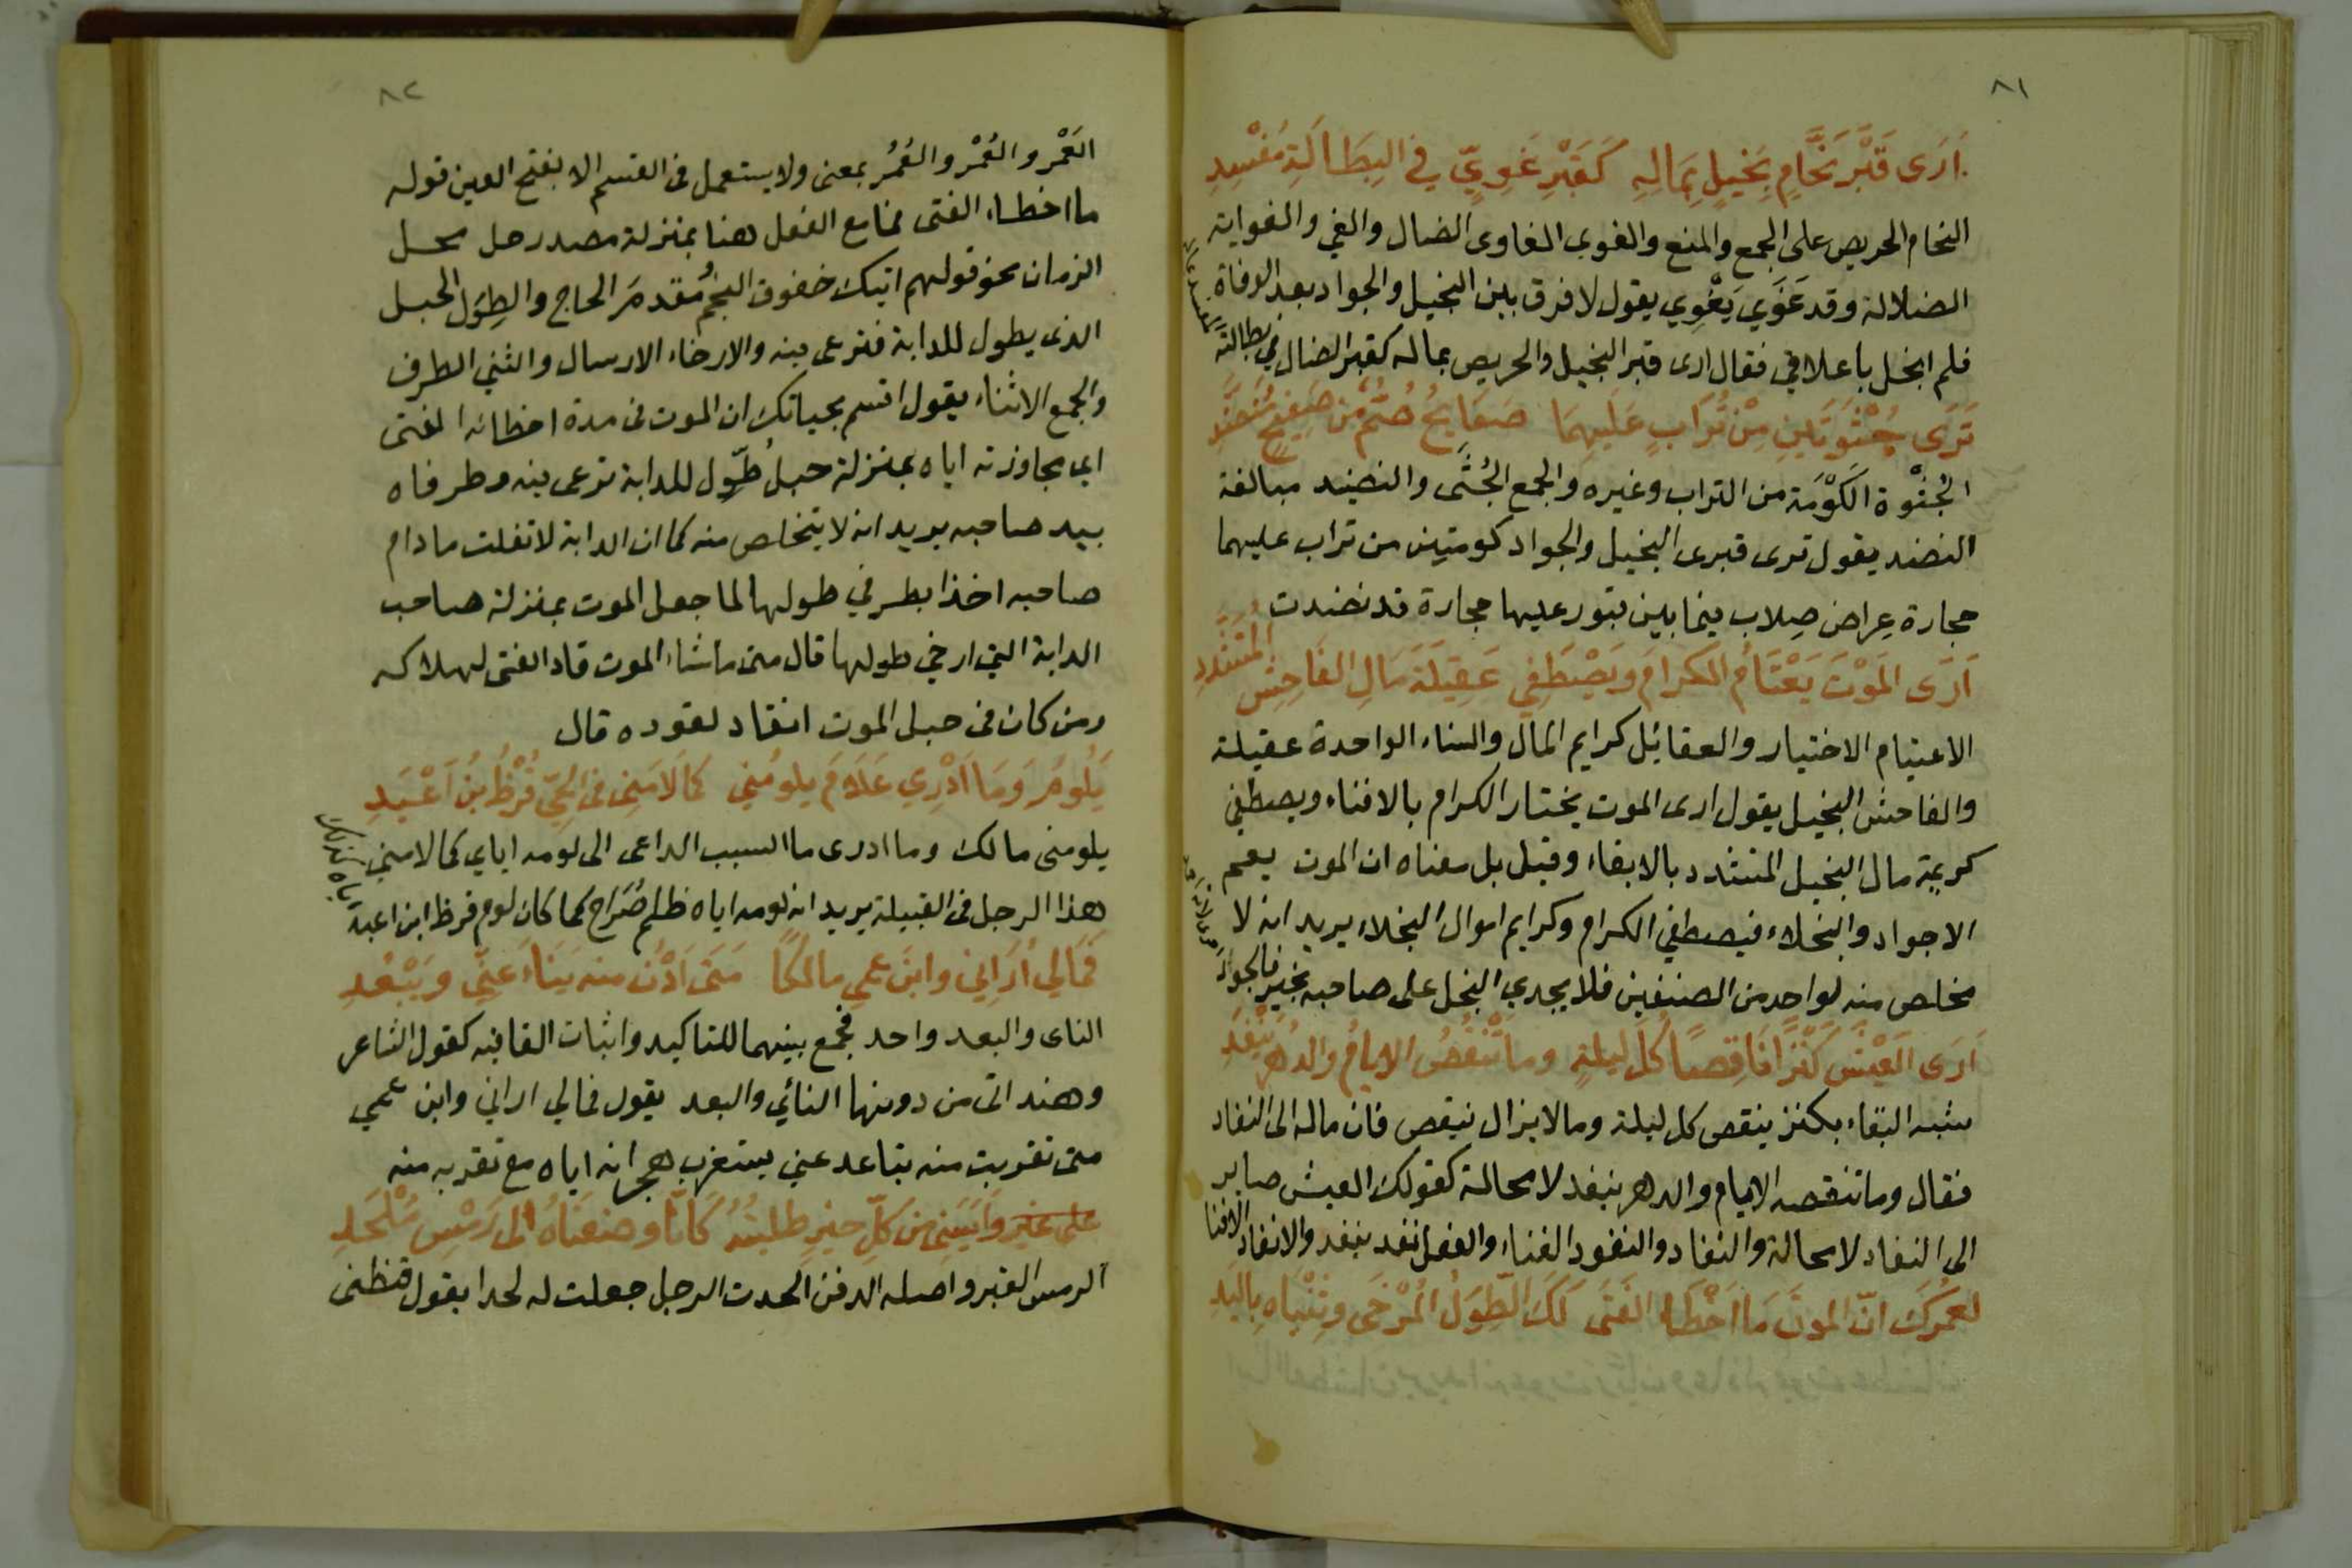 ٨١
أَرَى قَبْرَ نَحَّامٍ بَخِيلٍ بِمَالِهِ كَقَبْرِ غَوِيٍّ فِي البِطَالَةِ مُفْسِدِ
النحام الحريص على الجمع والمنع والغوى الغاوى الضال والغي والغواية
الضلالة وقد غَوَي يَغْوِي يقول لا فرق بين البخيل والجواد بعد الوفاة
فلم ابخل باعلاقي فقال ارى قبر البخيل والحريص بماله كقبر الضال في بطالته
تَرَى جُثْوَتَينِ مِنْ تُرَابٍ عَلَيهِمَا صَفَايحُ صُمٌّ من صَفِيحٍ مُنَضَّدِ
الجُثْوة الكَوْمَة من التراب وغيره والجمع الجُثَى والنضيد مبالغة
النضد يقول ترى قبرى البخيل والجواد كومتين من تراب عليهما
حجارة عِراض صِلاب فيما بين قبور عليها حجارة قد نضدت
أَرَى المَوْتَ يَعْتَامُ الكرامَ وَيَصْطَفِي عَقِيلَةَ مَالِ الفَاحِشِ المُتَشَدِّدِ
الاعتيام الاختيار والعقائل كرايم المال والنساء الواحدة عقيلة
والفاحش البخيل يقول ارى الموت يختار الكرام بالافناء ويصطفي
كريمة مال البخيل المتشدد بالابقاء وقيل بل معناه ان الموت يعم
الاجواد والبخلاء فيصطفي الكرام وكرايم اموال البخلاء يريد انه لا
مخلص منه لواحد من الصنفين فلا يجدي البخل على صاحبه بخير فالجواد
أرَى العَيْشَ كَنْزًا نَاقِصًا كُلَّ لَيلةٍ وما تَنْقُصُ الايامُ والدهرُ يَنْفَدِ
شبه البقاء بكنز ينقص كل ليلة وما لا يزال ينقص فان ماله الى النفاد
فقال وما تنقصه الايام والدهر ينفد لا محالة كقولك العيش صاير
الى النفاد لا محالة والنفاد والنفود الفناء والفعل نفد ينفد والانفاد الافنا
لعمرُكَ انّ الموتَ مَا اَخْطَا الفَتَى لَكَ الطِّوَلُ المُرْخَى وثِنْيَاه بِاليَدِ
٨٢
العَمْر والعُمْر والعُمُر بمعنى ولا يستعمل في القسم الا بفتح العين قوله
ما اخطاء الفتى فما مع الفعل هنا بمنزلة مصدر حل محل
الزمان نحو قولهم اتيك خفوق النجم ومقدمَ الحاج والطِوَل الحبل
الذى يطول للدابة فترعى فيه والارخاء الارسال والثني الطرف
والجمع الاثناء يقول اقسم بحياتك ان الموت فى مدة اخطائه الفتى
اي مجاوزته اياه بمنزلة حبل طُوِّل للدابة ترعى فيه وطرفاه
بيد صاحبه يريد انه لا يتخلص منه كما ان الدابة لا تفلت ما دام
صاحبه اخذا بطرفي طولها لما جعل الموت بمنزلة صاحب
الدابة التي ارخي طولها قال متى ما شاء الموت قاد الفتى لهلاكه
ومن كان فى حبل الموت انقاد لقوده قال
يَلُومُ وَمَا أَدْرِي عَلَامَ يلومُني كَمَا لَامَنِي فى الحَيِّ قُرْظُ بْنُ أَعْبَدِ
يلومنى مالك وما ادرى ما السبب الداعى الى لومه اياي كما لامني
هذا الرجل فى القبيلة يريد ان لومه اياه ظلم صُرَاح كما كان لوم قرظ ابن اعبد
فَمَالِي أَرَانِي وابنَ عمي مالكًا مَتَى اَدْنُ منه يَنَاءُ عَنِّي ويَبْعُدِ
الناى والبعد واحد فجمع بينهما للتاكيد واثبات القافيه كقول الشاعر
وهند اتى من دونها النائي والبعد يقول فمالي اراني وابن عمي
متى تقربت منه يتباعد عني يستغرب هجرانه اياه مع تقربه منه
على غير وَاَيَسَنِي من كلِّ خيرٍ طلبتُهُ كَأنَّا وضعْنَاهُ الى رَمْسِ مُلْحَدِ
الرمس القبر واصله الدفن الحدت الرجل جعلت له لحدا يقول قنطنى